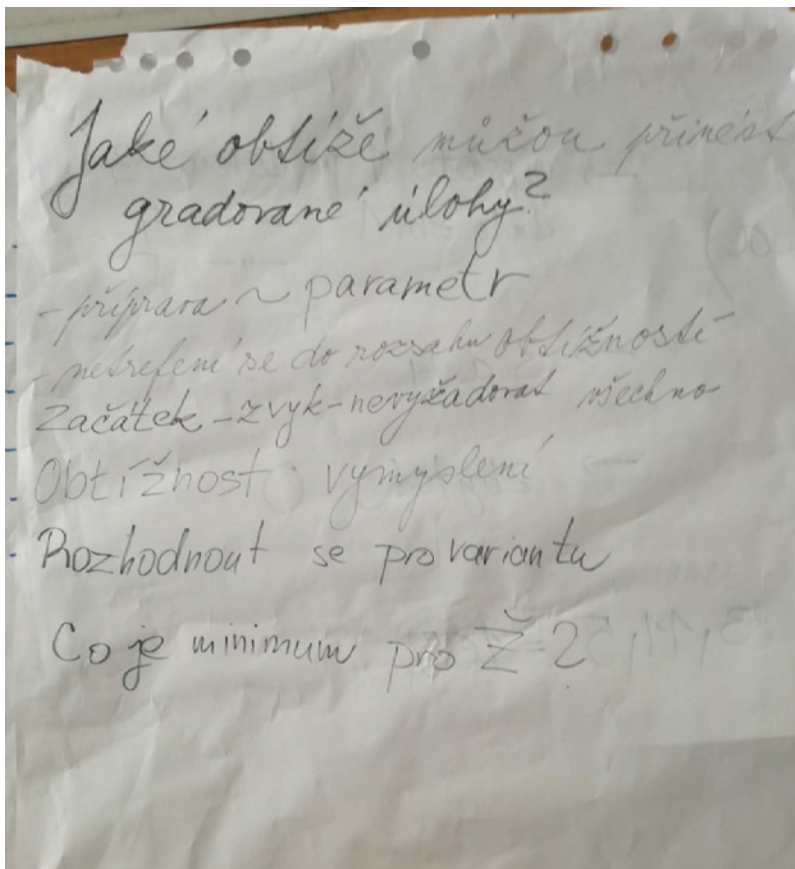 Jaké obtíže můžou přinést
gradované úlohy?
- příprava ~ parametr
- netrefení se do rozsahu obtížnosti
Začátek - zvyk - nevyžadovat všechno
Obtížnost vymyslení
- Rozhodnout se pro variantu
Co je minimum pro Ž 2